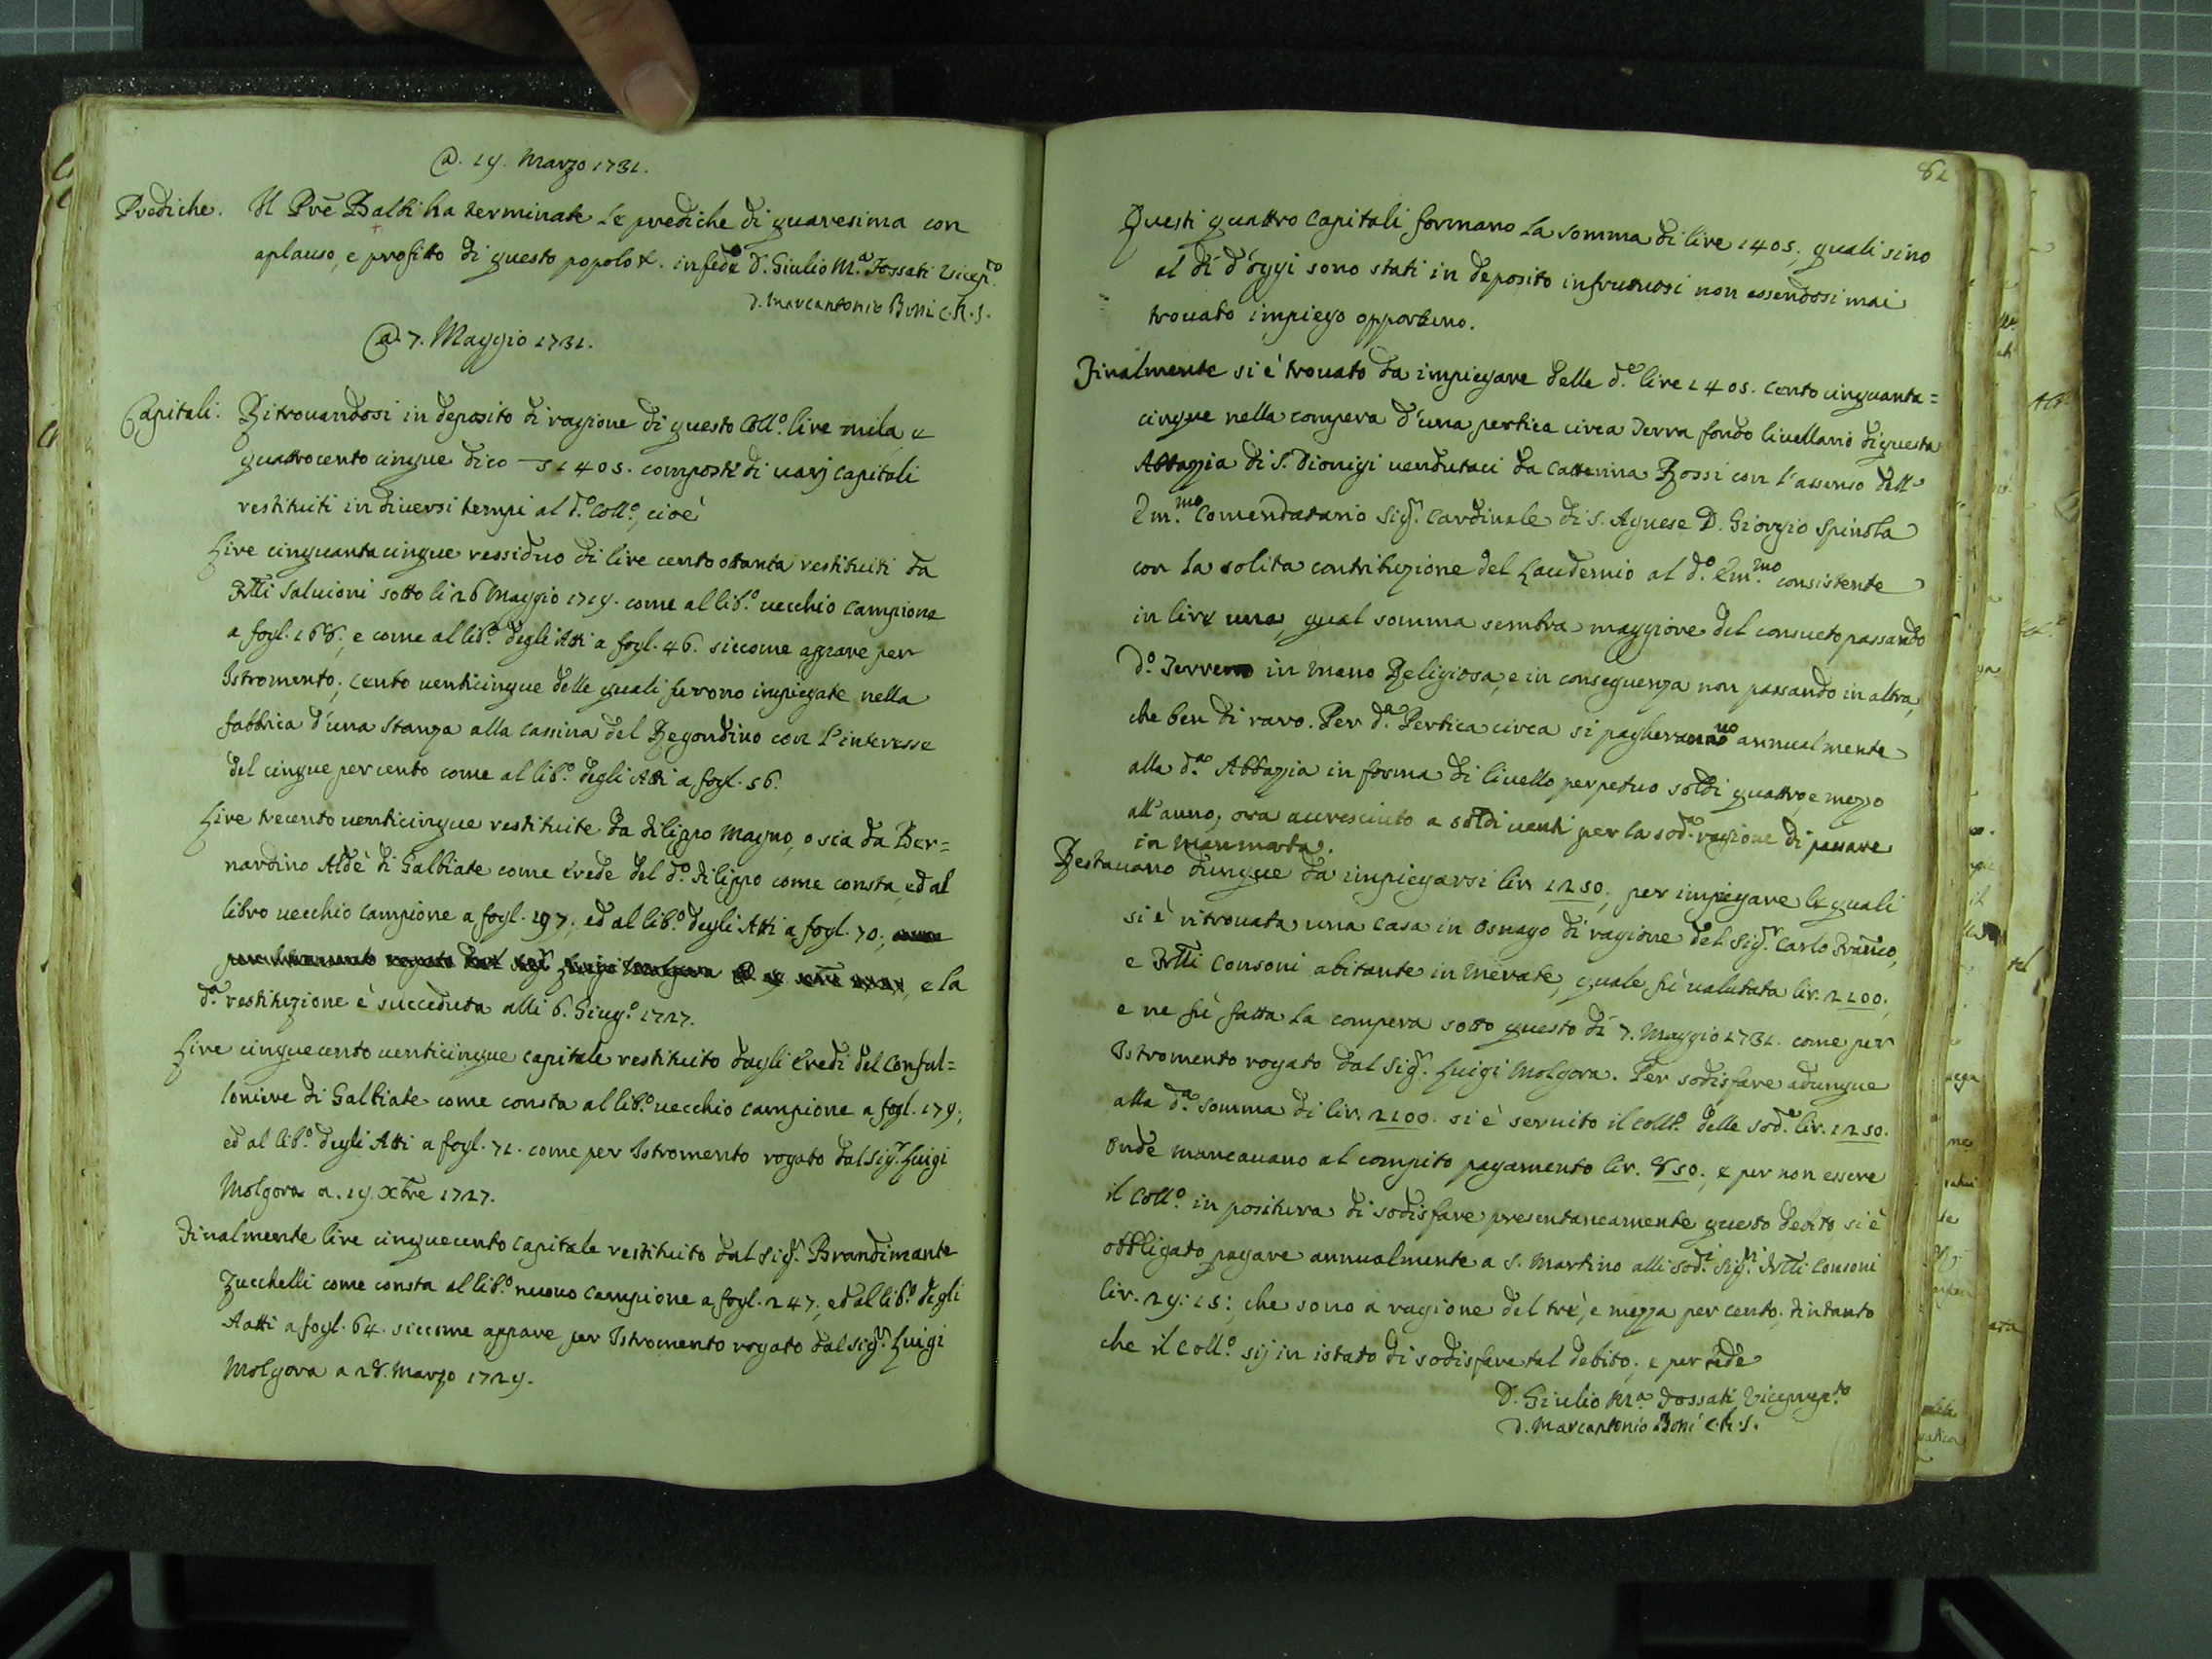 A. 19. Marzo 1731.
Prediche. Il Prē Balbi ha terminate le prediche di quaresima con
aplauso, e profitto di questo popolo &. in fede D. Giulio M.ª Fossati Vicep.to
D. Marcantonio Boni C.R.S.
A. 7. Maggio 1731.
Capitali. Ritrouandosi in deposito di ragione di questo Coll.º lire mila, e
quattrocento cinque dico 1405. composti di uarj capitali
restituiti in diuersi tempi al d.º Coll.º, cioè
Lire cinquantacinque ressiduo di lire cento ottanta restituiti da
Frlli Saluioni sotto li 26 Maggio 1719. come al lib.º uecchio Campione
a fogl. 166; e come al lib.º degli Atti a fogl. 46. siccome appare per
Istromento; cento uenticinque delle quali furono impiegate nella
fabbrica d'una stanza alla cassina del Regondino con l'interesse
del cinque per cento come al lib.º degli Atti a fogl. 56.
Lire trecento uenticinque restituite da Filippo Magno, o sia da Ber=
nardino Aldè di Galbiate come erede del d.º Filippo come consta, ed al
libro uecchio Campione a fogl. 197; ed al lib.º degli Atti a fogl. 70;
e la
d.ª restituzione è succeduta alli 6. Giug.º 1727.
Lire cinquecento uenticinque capitale restituito dagli Eredi del Confal=
loniere di Galbiate come consta al lib.º uecchio Campione a fogl. 179;
ed al lib.º degli Atti a fogl. 71. come per Istromento rogato dal Sig.r Luigi
Molgora a. 19. Xbre 1727.
Finalmente lire cinquecento capitale restituito dal Sig.r Brandimante
Zucchelli come consta al lib.º nuouo Campione a fogl. 247; ed al lib.º degli
Aatti a fogl. 64. siccome appare per Istromento rogato dal Sig.r Luigi
Molgora a 28. Marzo 1729.
81
Questi quattro Capitali formano la somma di lire 1405; quali sino
al dì d'oggi sono stati in deposito infrutuosi non essendosi mai
trouato impiego opportuno.
Finalmente si è trouato da impiegare delle d.e lire 1405. cento cinquanta=
cinque nella compera d'una pertica circa Terra fondo liuellario di questa
Abbazia di S. Dionigi uendutaci da Catterina Rossi con l'assenso dell'
Em.mo Comendatario Sig.r Cardinale di S. Agnese D. Giorgio Spinola
con la solita contribuzione del Laudemio al d.º Em.mo consistente
in lire una, qual somma sembra maggiore del consueto passando
d.º Terreno in mano Religiosa, e in conseguenza non passando in altra,
che ben di raro. Per d.ª Pertica circa si pagheranno annualmente
alla d.ª Abbazia in forma di liuello perpetuo soldi quattro, e mezzo
all'anno, ora accresciuto a soldi uenti per la sod.ª ragione di passare
in Manimorta.
Restauano dunque da impiegarsi lir. 1250; per impiegare le quali
si è ritrouata una casa in Osnago di ragione del Sig.r Carlo Franco,
e Frlli Consoni abitante in Merate, quale fù ualutata lir. 2100;
e ne fù fatta la compera sotto questo dì 7. Maggio 1731. come per
Istromento rogato dal Sig.r Luigi Molgora. Per sodisfare adunque
alla d.ª somma di lir. 2100. si è seruito il Coll.º delle sod.e lir. 1250.
Onde mancauano al compito pagamento lir. 850; e per non essere
il Coll.º in positura di sodisfare presentaneamente questo debito, si è
obbligato pagare annualmente a S. Martino alli sod.i Sig.ri Frlli Consoni
lir. 29:15; che sono a ragione del trè, e mezza per cento; fintanto
che il Coll.º sij in istato di sodisfare tal debito; e per fede
D. Giulio M.ª Fossati Viceprep.to
D. Marcantonio Boni C.R.S.